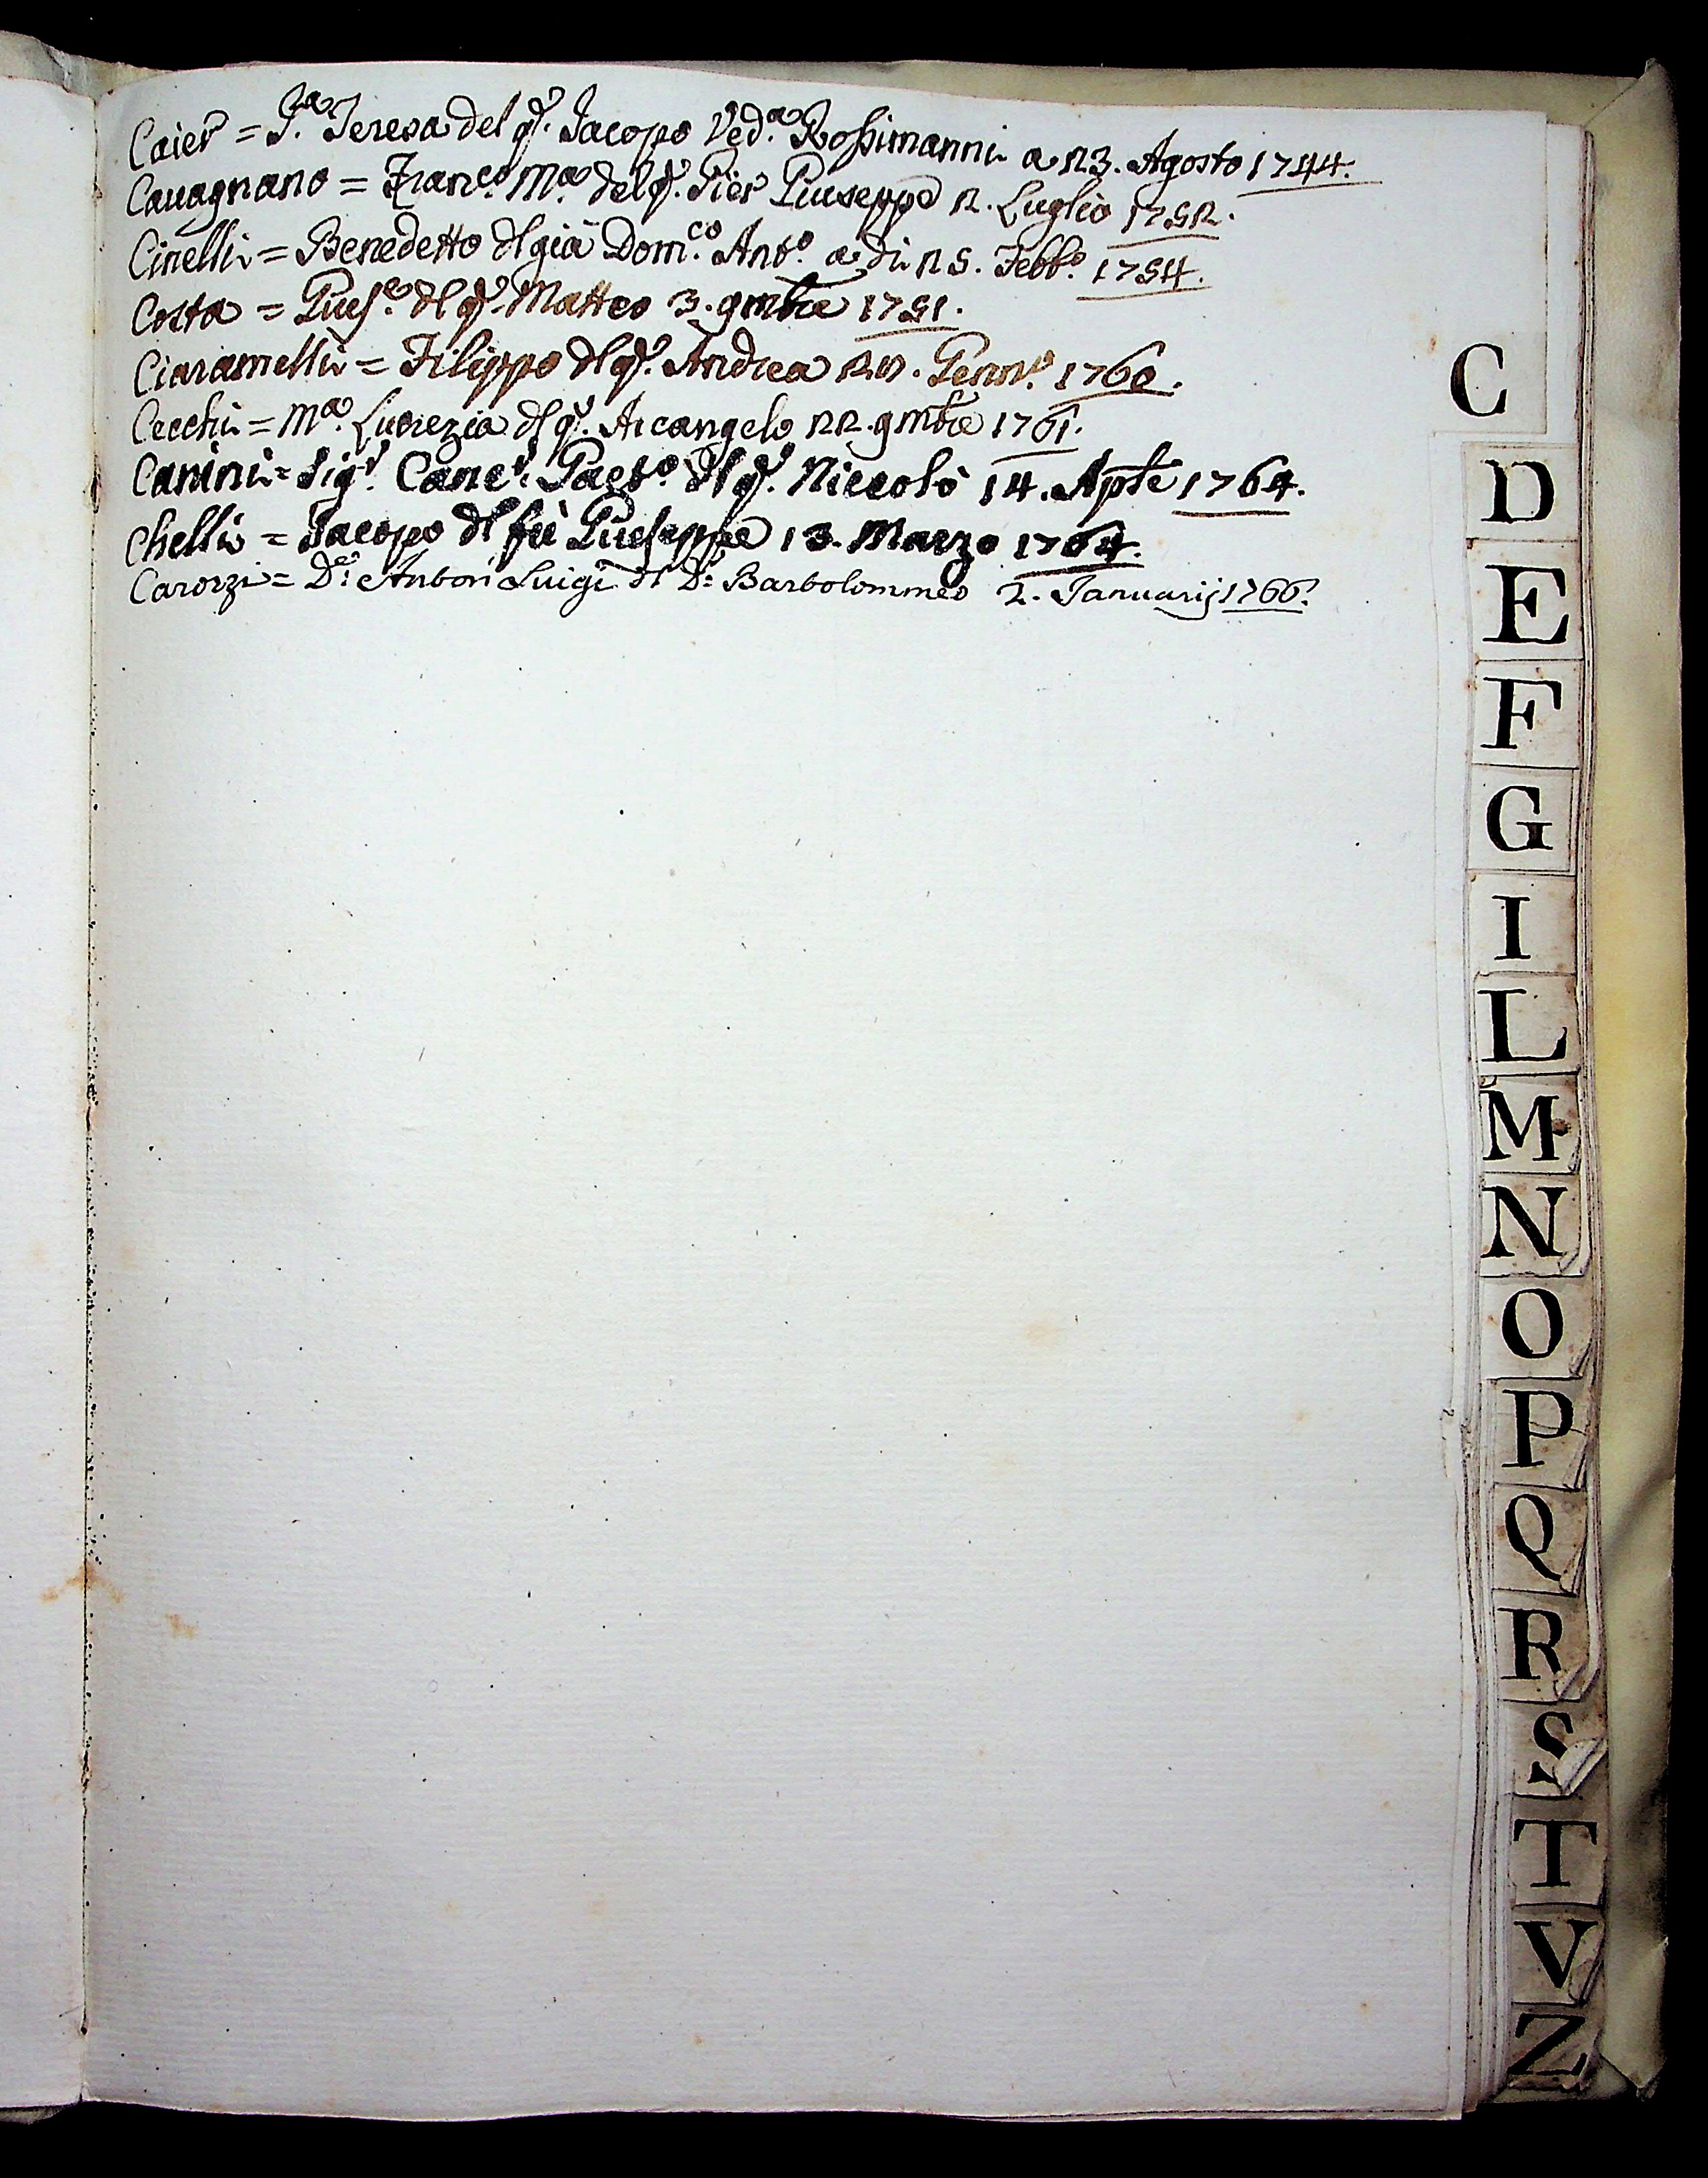 Caier = S.ª Teresa del q.ᵐ Jacopo Ved.ª Rossimanni a 23. Agosto 1744.
Cauagnano = Franc.º M.ª del q.ᵐ Pier Giuseppe 2. Luglio 1752.
Cinelli = Benedetto dl già Dom.co Ant.º a di 25. Febb.º 1754.
Costa = Gius.e dl q.ᵐ Matteo 3. 9mbre 1751.
Ciaramelli = Filippo dl q.ᵐ Andrea Genn.º 1760.
Cecchi = M.ª Lucrezia dl q.ᵐ Arcangelo 22. 9mbre 1761.
Canini = Sig.r Canc.r Gaet.º dl q.ᵐ Niccolò 14. Aple 1764.
Chelli = Jacopo dl fù Giuseppe 13. Marzo 1764.
Carozzi = D.r Anton Luigi dl D.r Bartolommeo 2. Januarij 1766.
C
D
E
F
G
I
L
M
N
O
P
Q
R
S
T
V
Z